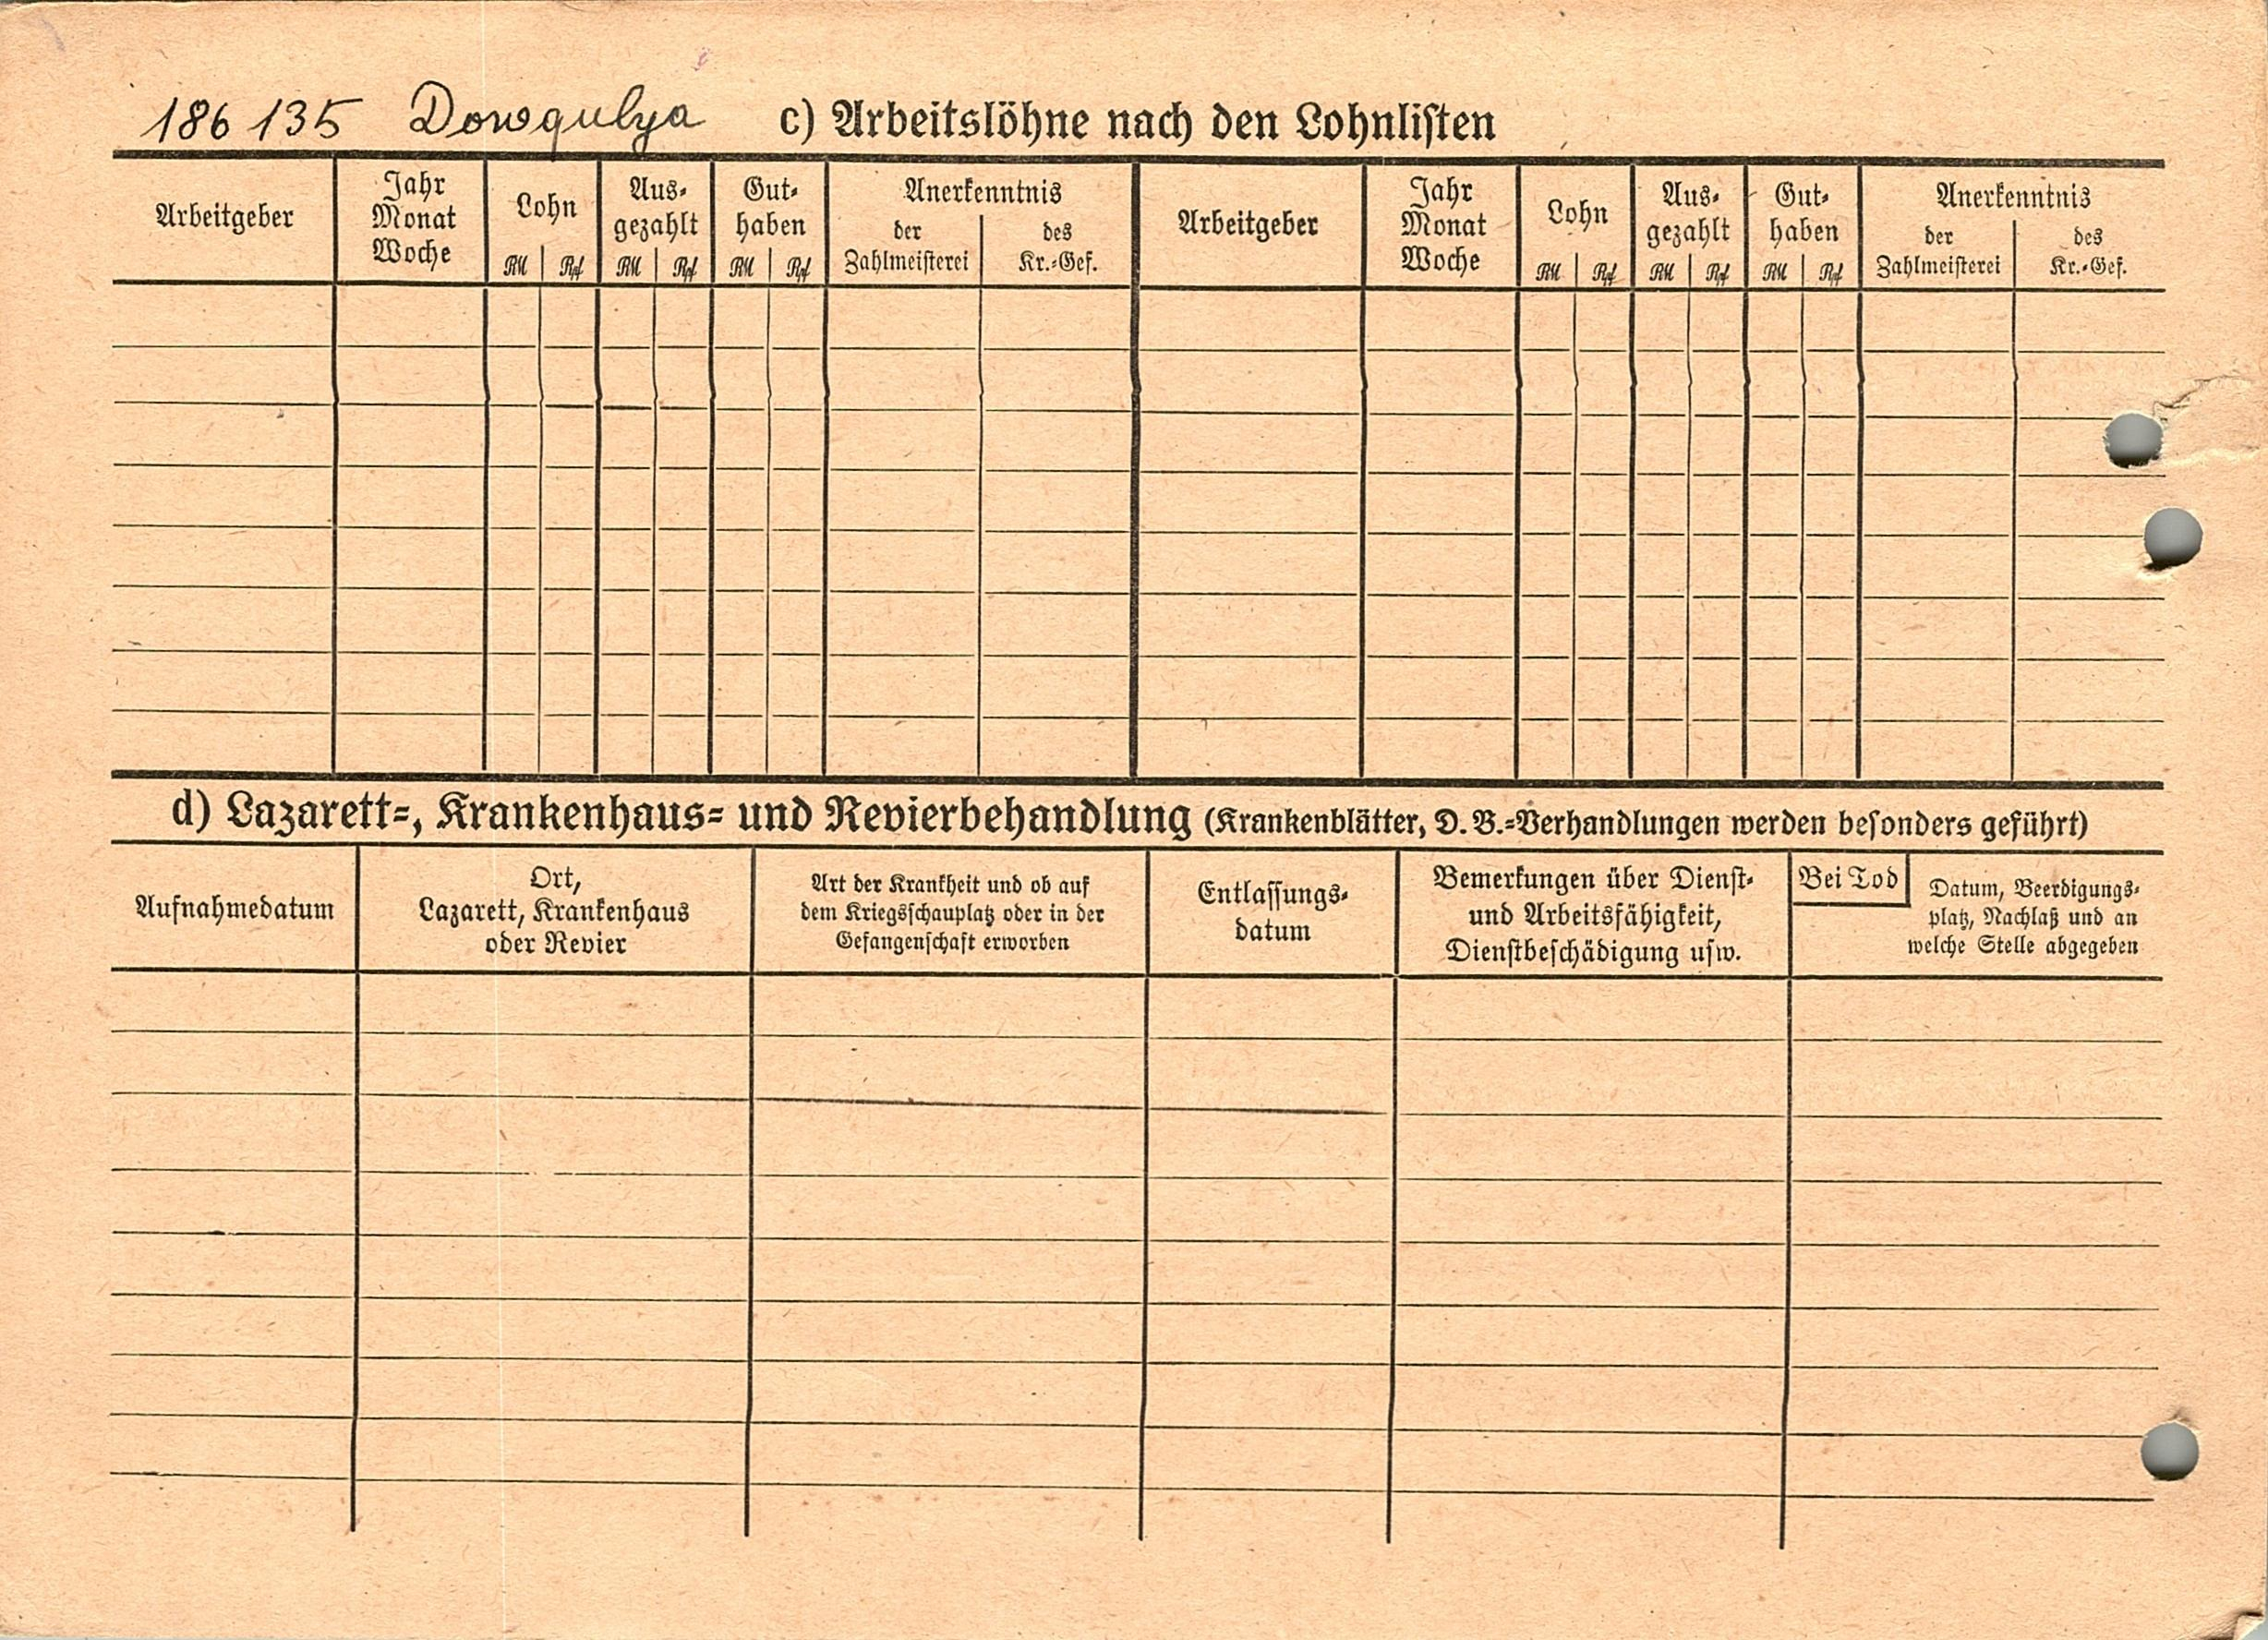 186 135 Dowgulya c) Arbeitslöhne nach den Lohnlisten
Arbeitgeber
Jahr
Monat
Woche
Lohn
RM Rpf
Aus-
gezahlt
RM Rpf
Gut-
haben
RM Rpf
Anerkenntnis
der
Zahlmeisterei
des
Kr.-Gef.
Arbeitgeber
Jahr
Monat
Woche
Lohn
RM Rpf
Aus-
gezahlt
RM Rpf
Gut-
haben
RM Rpf
Anerkenntnis
der
Zahlmeisterei
des
Kr.-Gef.
d) Lazarett-, Krankenhaus- und Revierbehandlung (Krankenblätter, D. B.-Verhandlungen werden besonders geführt)
Aufnahmedatum
Ort,
Lazarett, Krankenhaus
oder Revier
Art der Krankheit und ob auf
dem Kriegsschauplatz oder in der
Gefangenschaft erworben
Entlassungs-
datum
Bemerkungen über Dienst-
und Arbeitsfähigkeit,
Dienstbeschädigung usw.
Bei Tod
Datum, Beerdigungs-
platz, Nachlaß und an
welche Stelle abgegeben